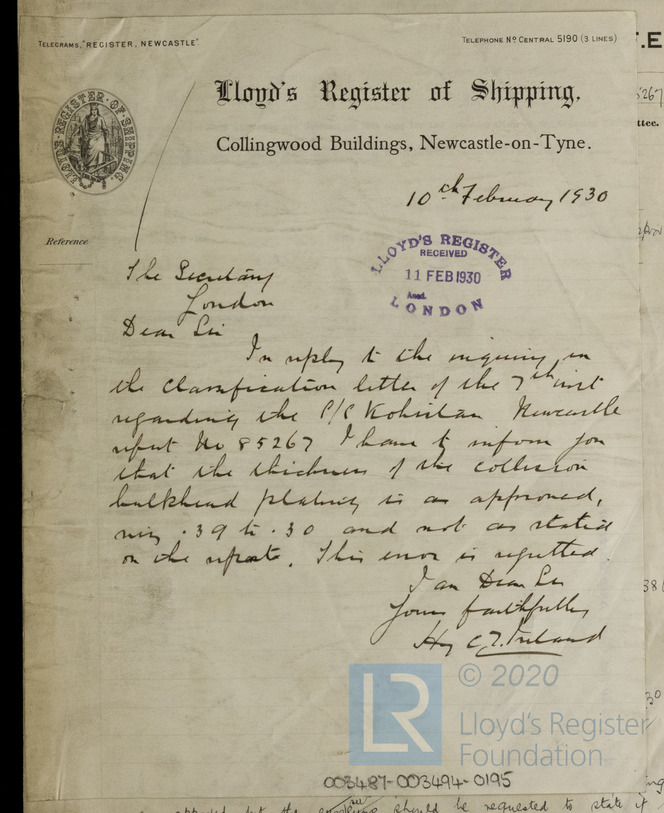 TELEGRAMS, "REGISTER, NEWCASTLE".
TELEPHONE Nº CENTRAL 5190 (3 LINES)
LLOYD'S REGISTER OF SHIPPING
Lloyd's Register of Shipping,
Collingwood Buildings, Newcastle-on-Tyne.
10th February 1930
Reference
LLOYD'S REGISTER
RECEIVED
11 FEB 1930
Ansd.
LONDON
The Secretary
London
Dear Sir
In reply to the inquiry in
the classification letter of the 7th inst
regarding the S/S Kohistan Newcastle
report No 85267 I have to inform you
that the thickness of the collision
bulkhead plating is as approved,
viz .39 to .30 and not as stated
on the report. This error is regretted.
I am Dear Sir
Yours faithfully
Hy C. Ireland
LR
© 2020
Lloyd's Register
Foundation
003487-003494-0195
5267
ttee.
should be requested to state if